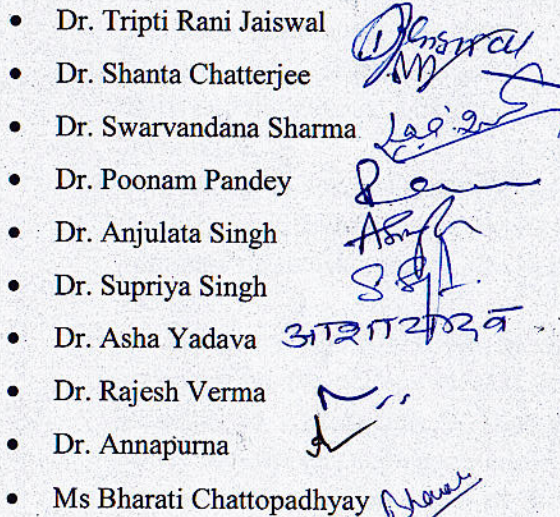 • Dr. Tripti Rani Jaiswal
• Dr. Shanta Chatterjee
• Dr. Swarvandana Sharma
• Dr. Poonam Pandey
• Dr. Anjulata Singh
• Dr. Supriya Singh
• Dr. Asha Yadava आशा यादव
• Dr. Rajesh Verma
• Dr. Annapurna
• Ms Bharati Chattopadhyay